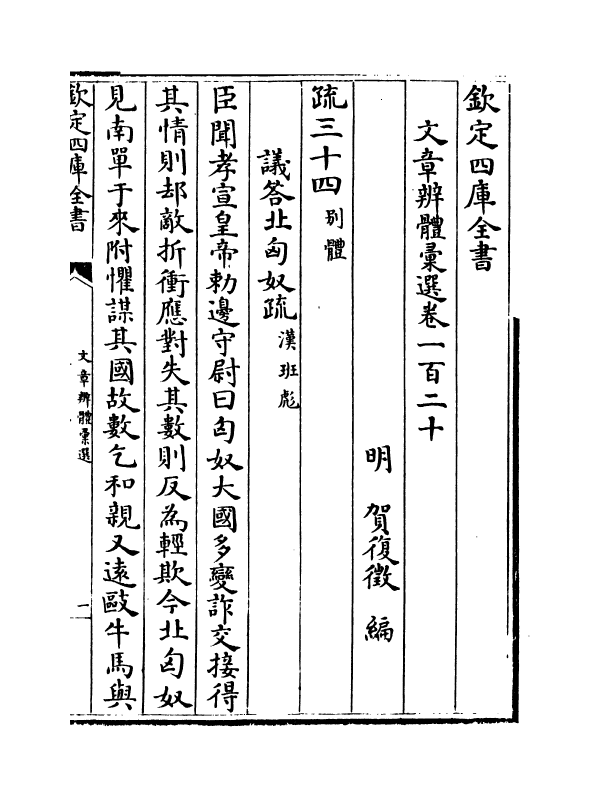 欽定四庫全書
文章辨體彙選卷一百二十
明 賀復徵 編
疏三十四 别體
議答北匈奴疏 漢班彪
臣聞孝宣皇帝勅邊守尉曰匈奴大國多變詐交接得
其情則却敵折衝應對失其數則反為輕欺今北匈奴
見南單于來附懼謀其國故數乞和親又遠敺牛馬與
欽定四庫全書
文章辨體彙選
一